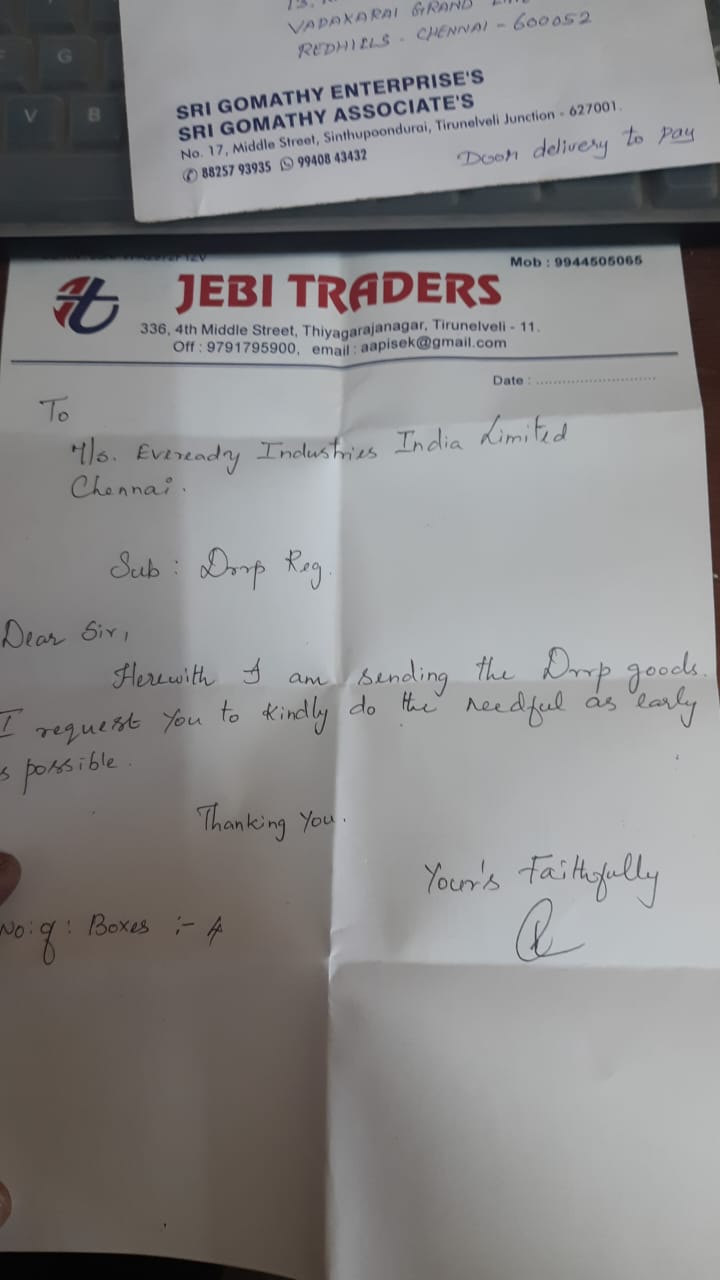 VADAKARAI GRAND
REDHILLS - CHENNAI - 600052
SRI GOMATHY ENTERPRISE'S
SRI GOMATHY ASSOCIATE'S
No. 17, Middle Street, Sinthupoondurai, Tirunelveli Junction - 627001.
88257 93935 99408 43432
Door delivery to pay
Mob : 9944505065
JEBI TRADERS
336, 4th Middle Street, Thiyagarajanagar, Tirunelveli - 11.
Off : 9791795900, email : aapisek@gmail.com
Date : ............................
To
M/s. Eveready Industries India Limited
Chennai.
Sub : Drrp Reg.
Dear Sir,
Herewith I am sending the Drrp goods.
I request you to kindly do the needful as early
s possible.
Thanking You.
Your's Faithfully
No: of: Boxes :- 4
G
V B